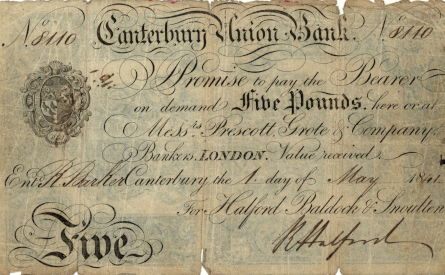 No 8110 Canterbury Union Bank. No 8110
I Promise to pay the Bearer
on demand Five Pounds, here or at
Messrs Prescott, Grote & Company
Bankers, LONDON. Value received.
Entd R Parker Canterbury the 1 day of May 1841
For Halford Baldock & Snoulten
Five R Halford